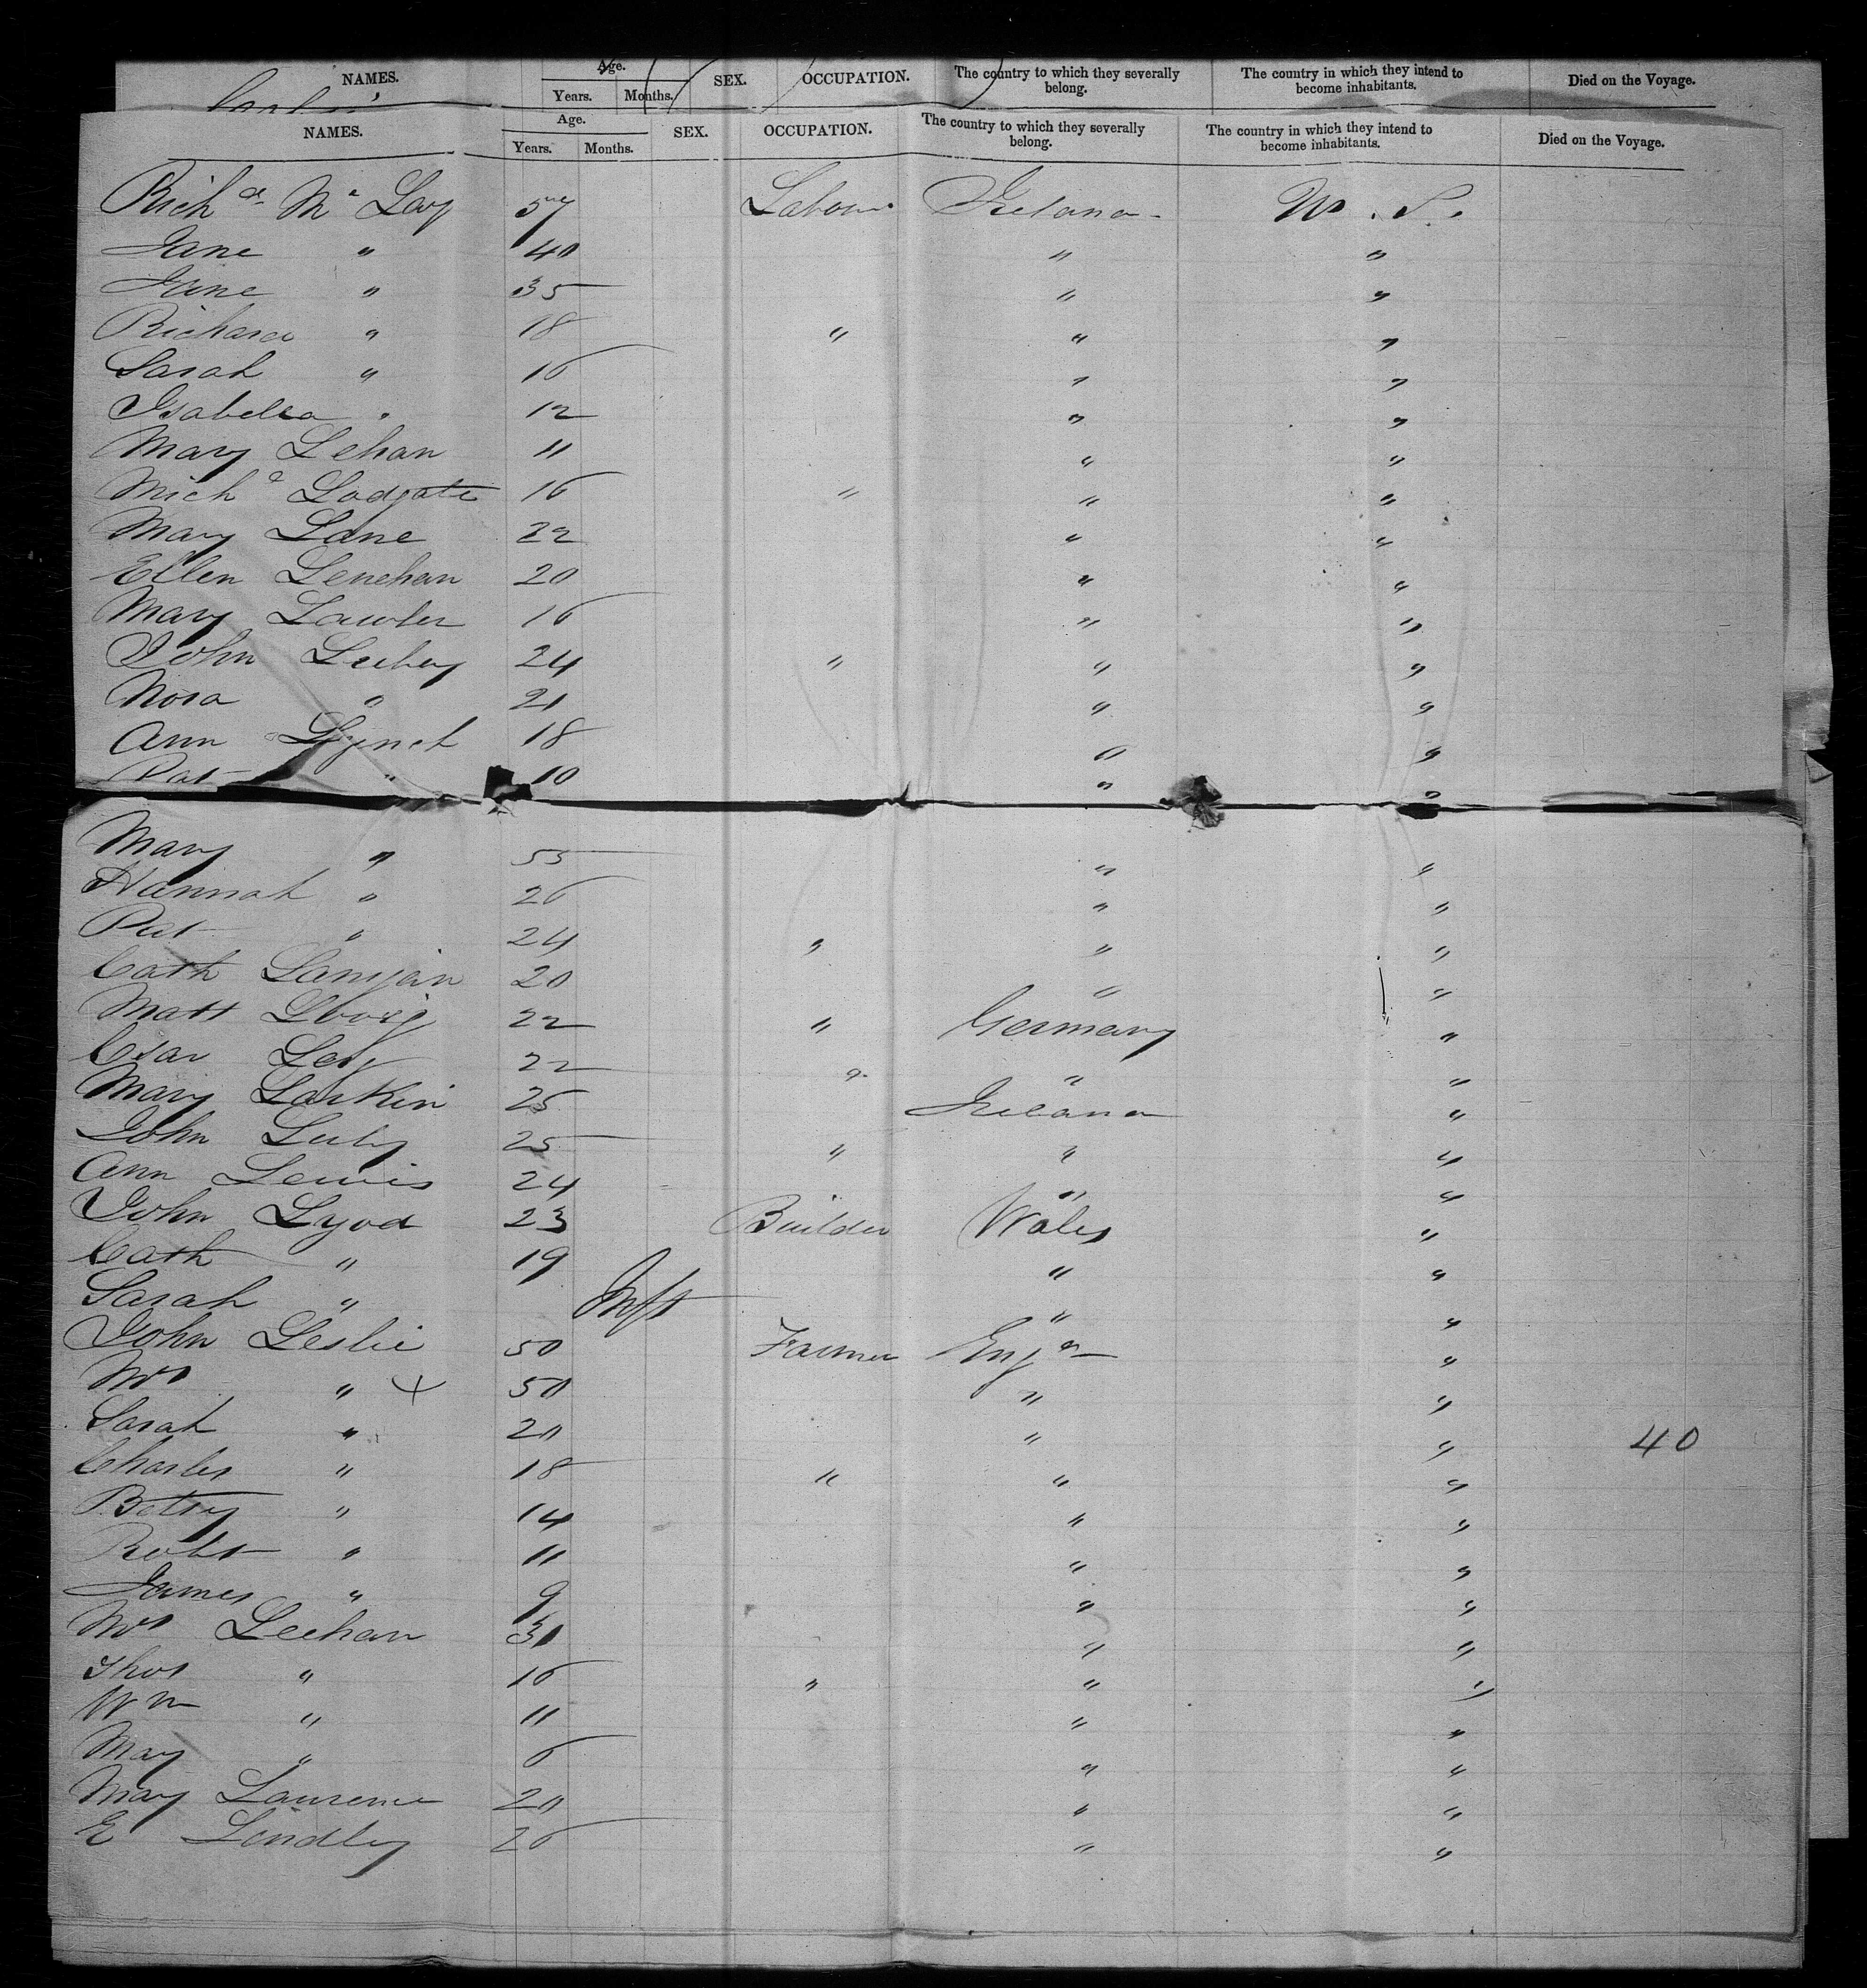 NAMES. Age. Years. Months. SEX. OCCUPATION. The country to which they severally belong. The country in which they intend to become inhabitants. Died on the Voyage.
NAMES. Age. Years. Months. SEX. OCCUPATION. The country to which they severally belong. The country in which they intend to become inhabitants. Died on the Voyage.
Richd. Mc 57 Labour Ireland U. S.
Jane " 40 " "
Jane " 35 " "
Richard " 18 " " "
Sarah " 16 " "
Isabella " 12 " "
Mary Lehan 11 " "
Michl Lodgate 16 " " "
Mary Lane 22 " "
Ellen Lenehan 20 " "
Mary Lawler 16 " "
John 24 " " "
Nora " 21 " "
Ann Lynch 18 " "
Pat " 10 " "
Mary " 55 " "
Hannah " 26 " "
Pat " 24 " " "
Cath 20 " "
Matt 22 " Germany "
22 " " "
Mary Larkin 25 Ireland "
John Luby 25 " " "
Ann Lewis 24 " "
John Lyod 23 Builder Wales "
Cath " 19 " "
Sarah " Inft " "
John Leslie 50 Farmer Engd "
Mrs " + 50 " "
Sarah " 20 " " 40
Charles " 18 " " "
Betsy " 14 " "
Robt " 11 " "
James " 9 " "
Mrs Leehan 30 " "
Thos " 16 " " "
Wm " 11 " "
May " 6 " "
Mary Laurence 20 " "
E Lindley 26 " "